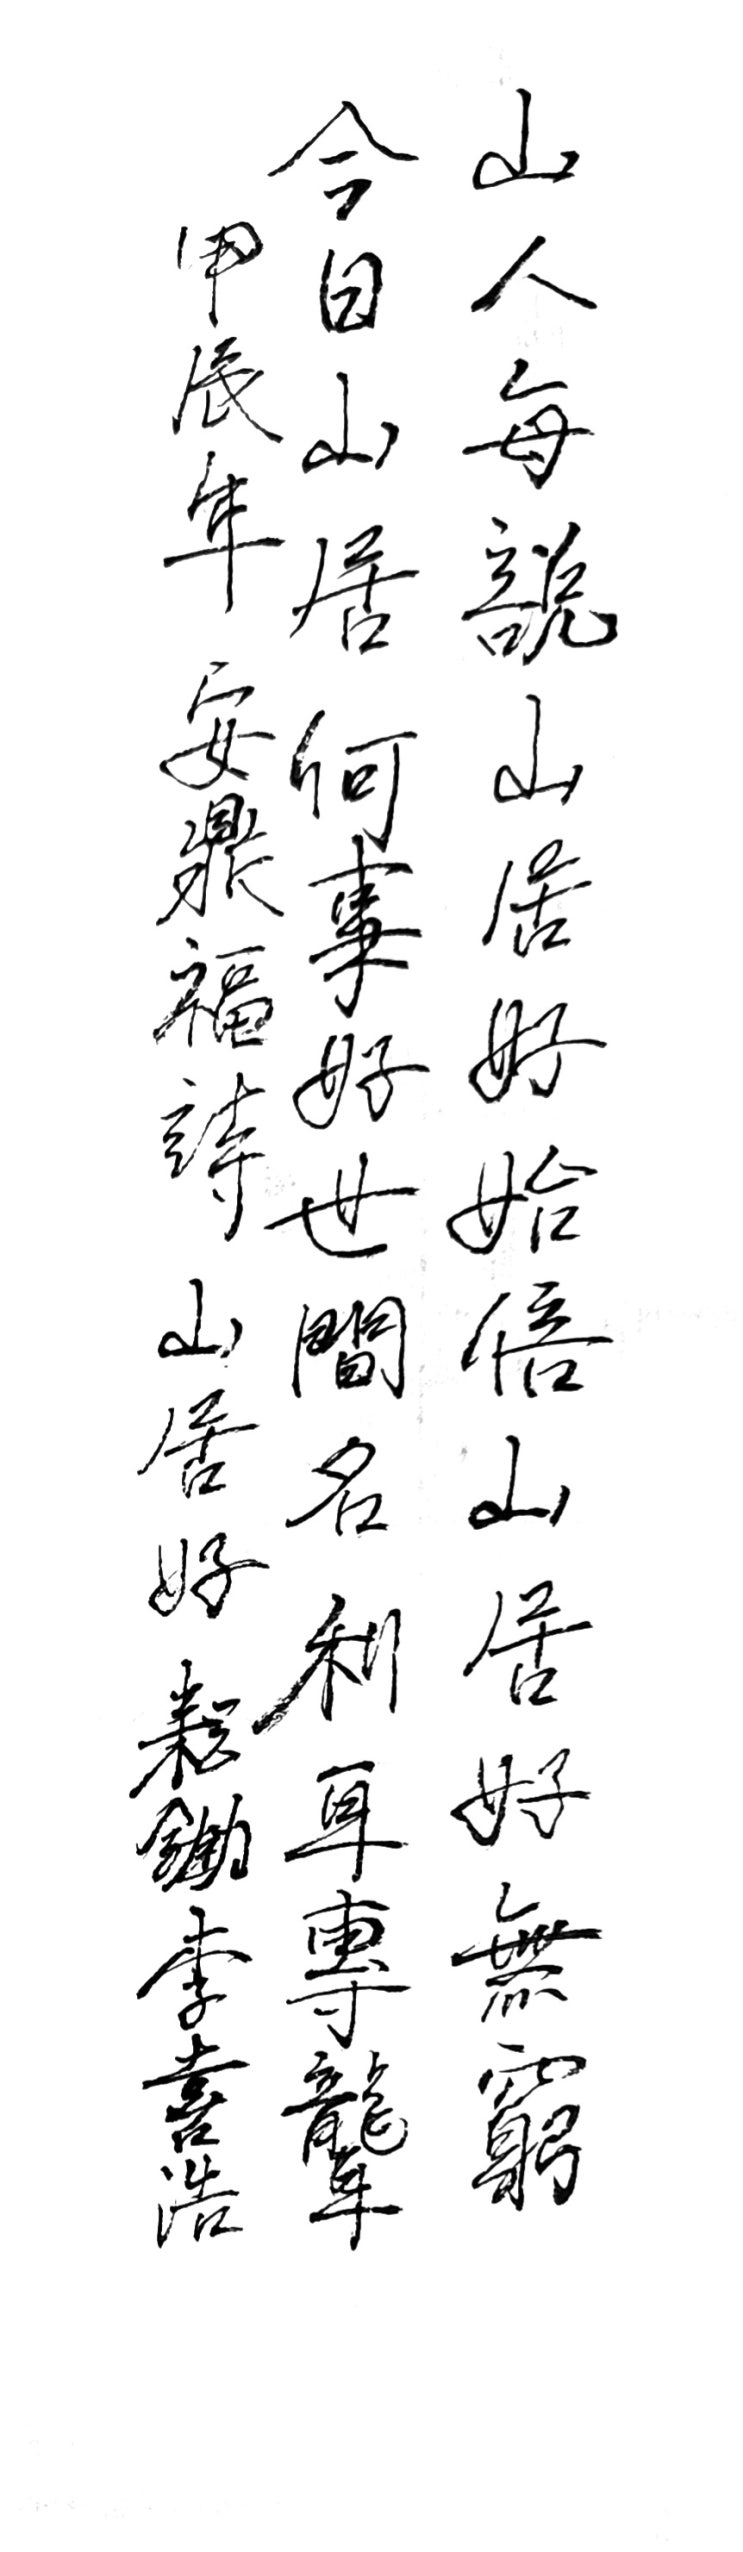 山人每說山居好始信山居好無窮
今日山居何事好世間名利耳專聾
甲辰年 安鼎福詩 山居好 耘鋤 李喜浩